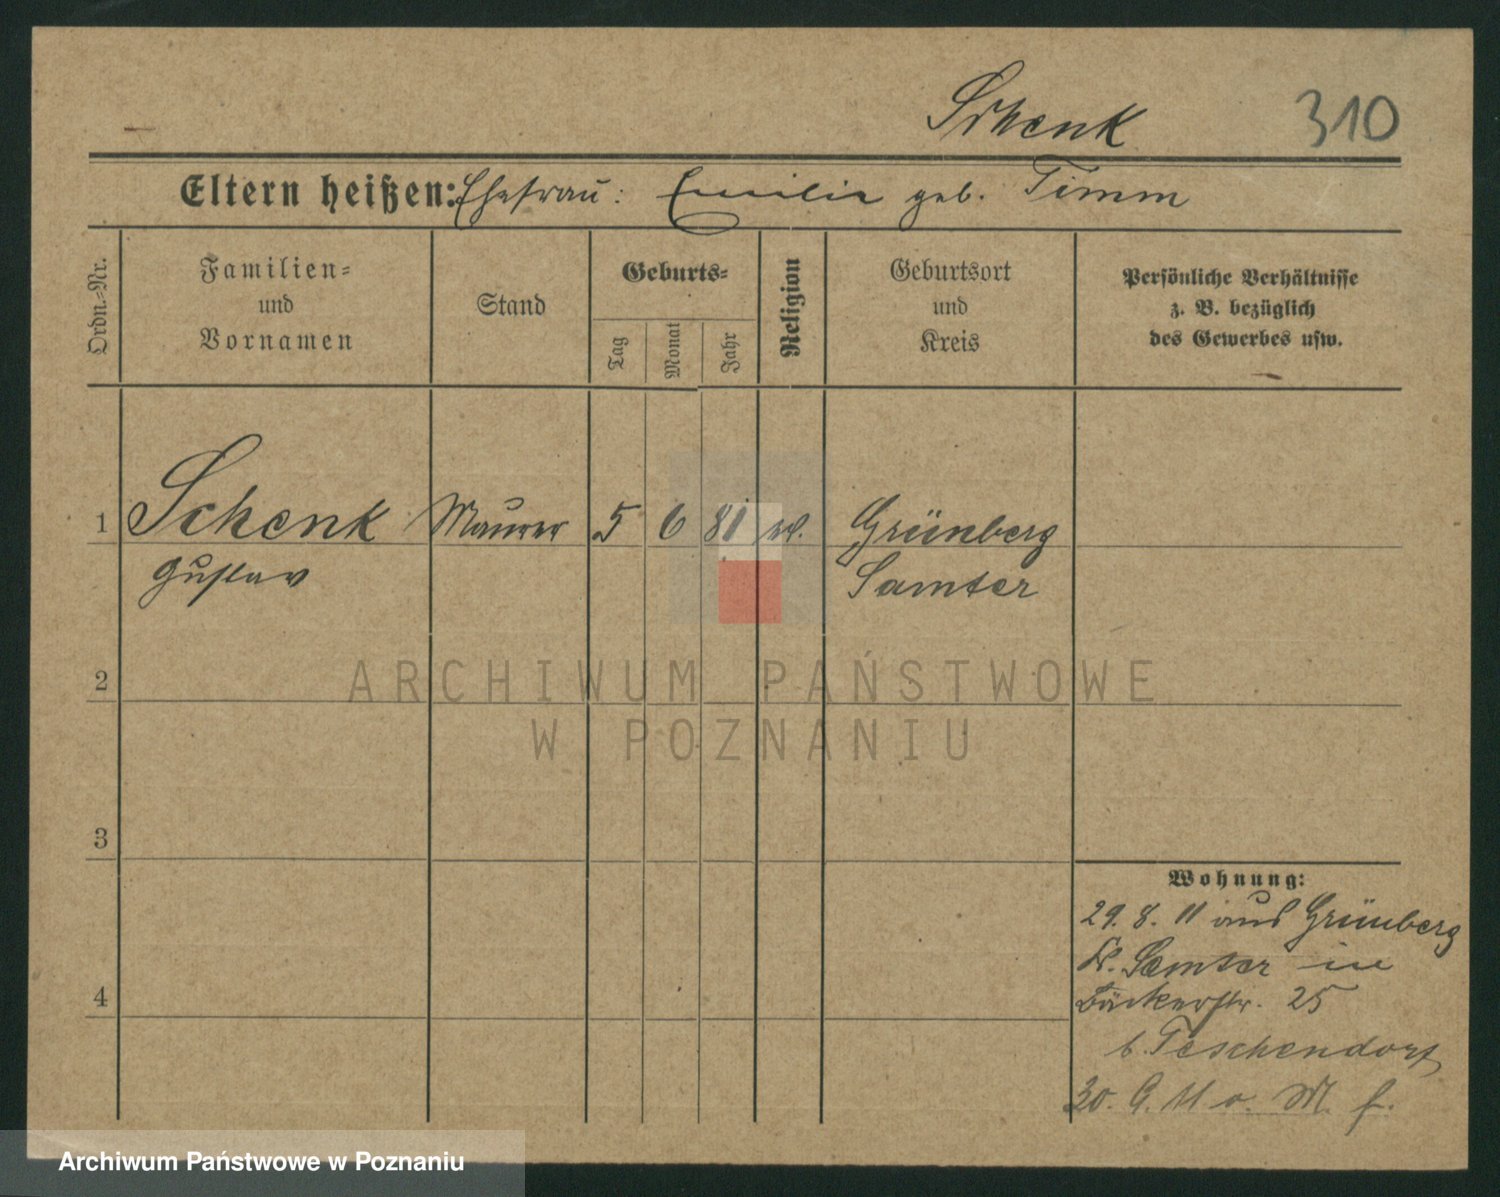 Schenk 310
Eltern heißen: Ehefrau: Emilie geb. Timm
Ordn.-Nr.
Familien-
und
Vornamen
Stand
Geburts-
Tag
Monat
Jahr
Religion
Geburtsort
und
Kreis
Persönliche Verhältnisse
z. B. bezüglich
des Gewerbes usw.
1 Schenk Maurer 5 6 81 Grünberg
Gustav Samter
2
ARCHIWUM PAŃSTWOWE
W POZNANIU
3
Wohnung:
29. 8. 11 aus Grünberg
Kr. Samter in
4 Bäckerstr. 25
b. Teschendorf
30. 9. 11 o. M. f.
Archiwum Państwowe w Poznaniu